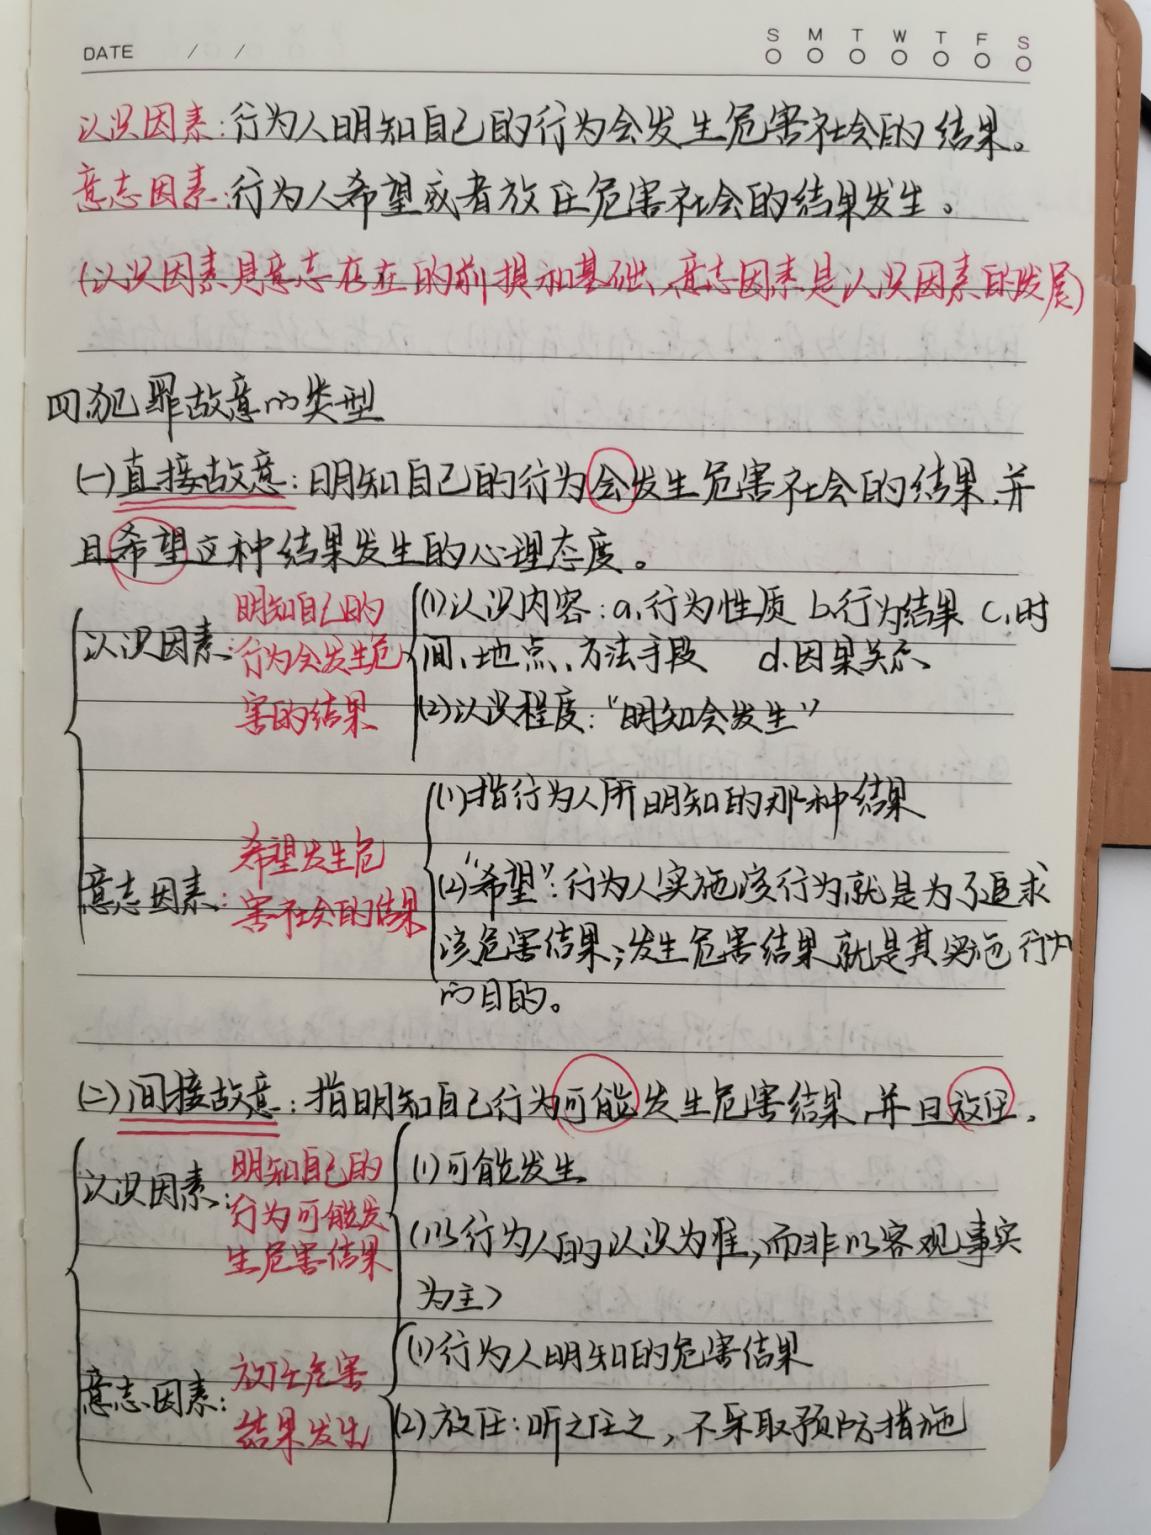 DATE / / S M T W T F S
认识因素:行为人明知自己的行为会发生危害社会的结果。
意志因素:行为人希望或者放任危害社会的结果发生。
(认识因素是意志存在的前提和基础、意志因素是认识因素的发展)
四、犯罪故意的类型
(一)直接故意:明知自己的行为会发生危害社会的结果,并
且希望这种结果发生的心理态度。
认识因素:
明知自己的
行为会发生危
害的结果
(1)认识内容:a.行为性质 b.行为结果 c.时
间、地点、方法手段 d.因果关系
(2)认识程度:“明知会发生”
意志因素:
希望发生危
害社会的结果
(1)指行为人所明知的那种结果
(2)“希望”:行为人实施该行为就是为了追求
该危害结果;发生危害结果就是其实施行为
的目的。
(二)间接故意:指明知自己行为可能发生危害结果,并且放任.
认识因素:
明知自己的
行为可能发
生危害结果
(1)可能发生
(以行为人的认识为准,而非以客观事实
为主)
意志因素:
放任危害
结果发生
(1)行为人明知的危害结果
(2)放任:听之任之,不采取预防措施